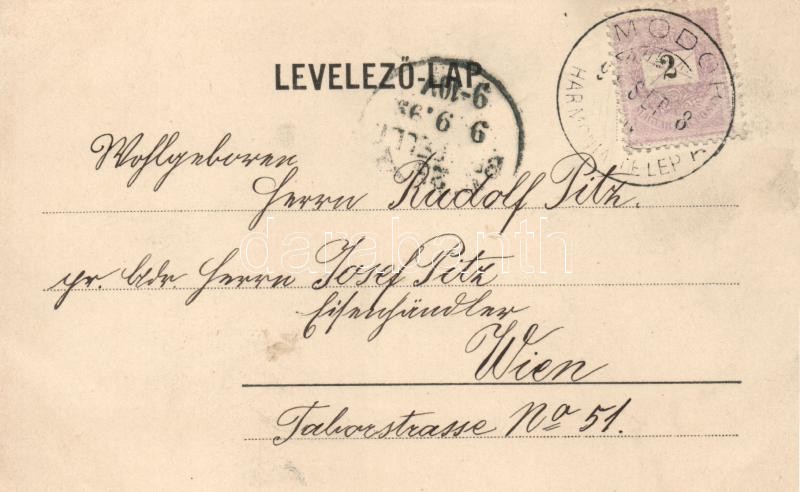 MODOR
2
SEP 8
HARMONIATELEP
LEVELEZŐ-LAP
9-10V
9. 9.
Wohlgeboren
Herrn Rudolf Pitz.
pr. Adr. Herrn Josef Pitz
Eisenhändler
Wien
Taborstrasse No 51.
darabanth